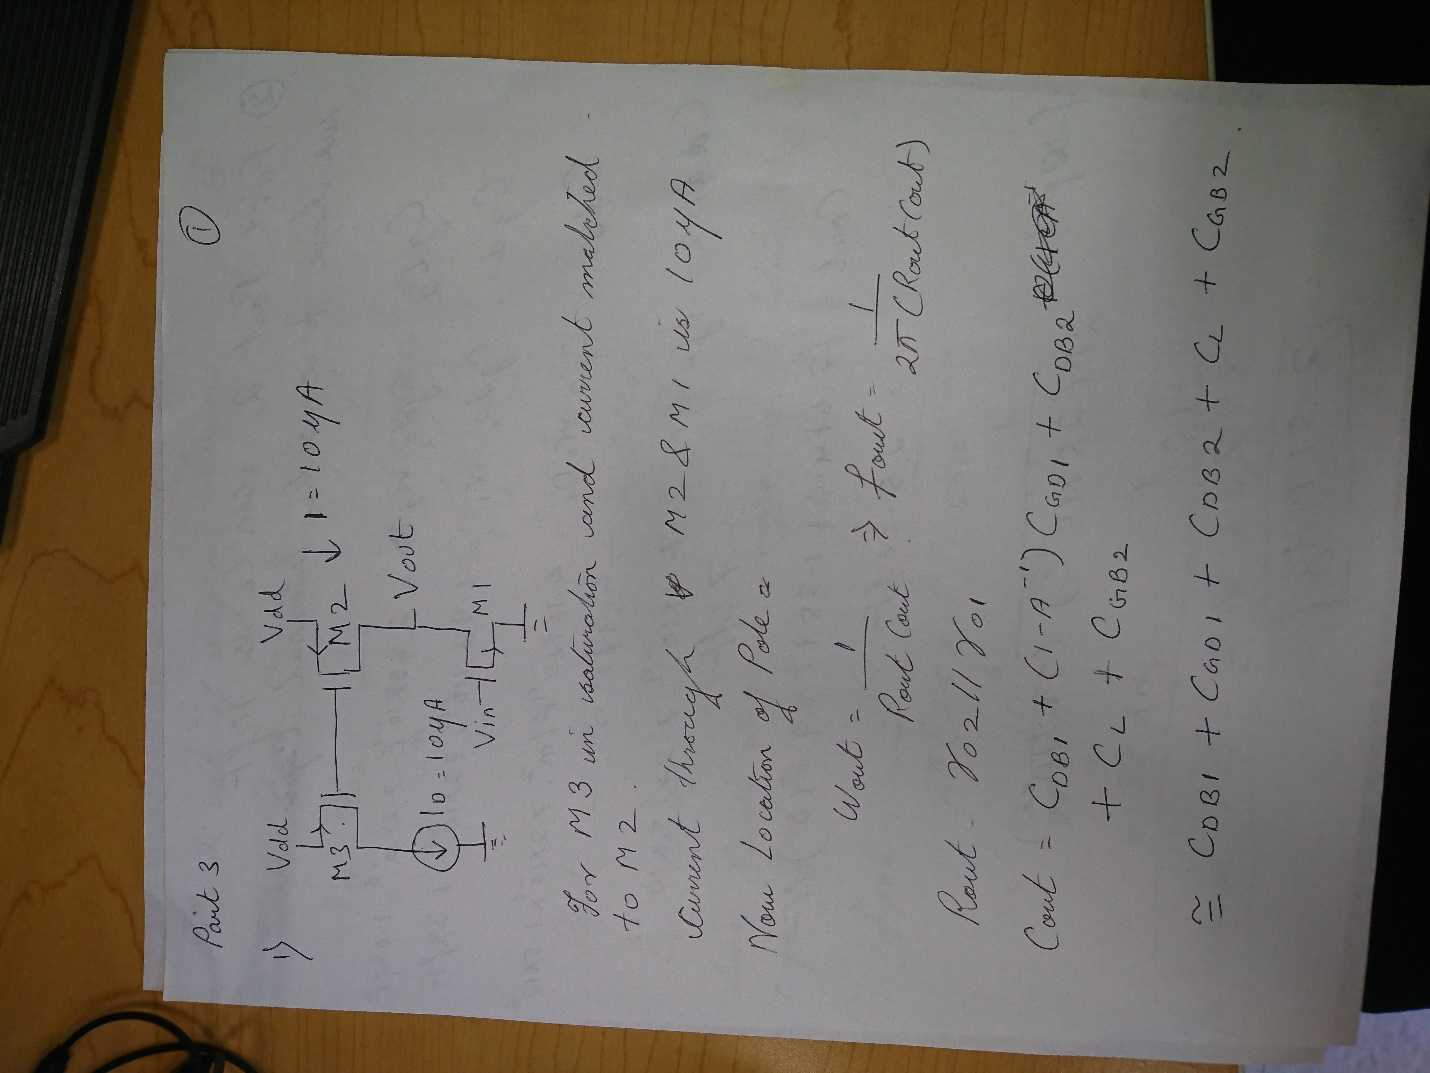 Part 3
①
1)
Vdd
Vdd
M3
M2
↓ I = 10 μA
Vout
ID = 10μA
Vin
M1
For M3 in saturation and current matched
to M2.
Current through M2 & M1 is 10 μA
Now Location of Pole =
Wout = 1 / Rout Cout ⇒ fout = 1 / 2π (Rout Cout)
Rout = ro2 || ro1
Cout = CDB1 + (1-A⁻¹) CGD1 + CDB2
+ CL + CGB2
≅ CDB1 + CGD1 + CDB2 + CL + CGB2.